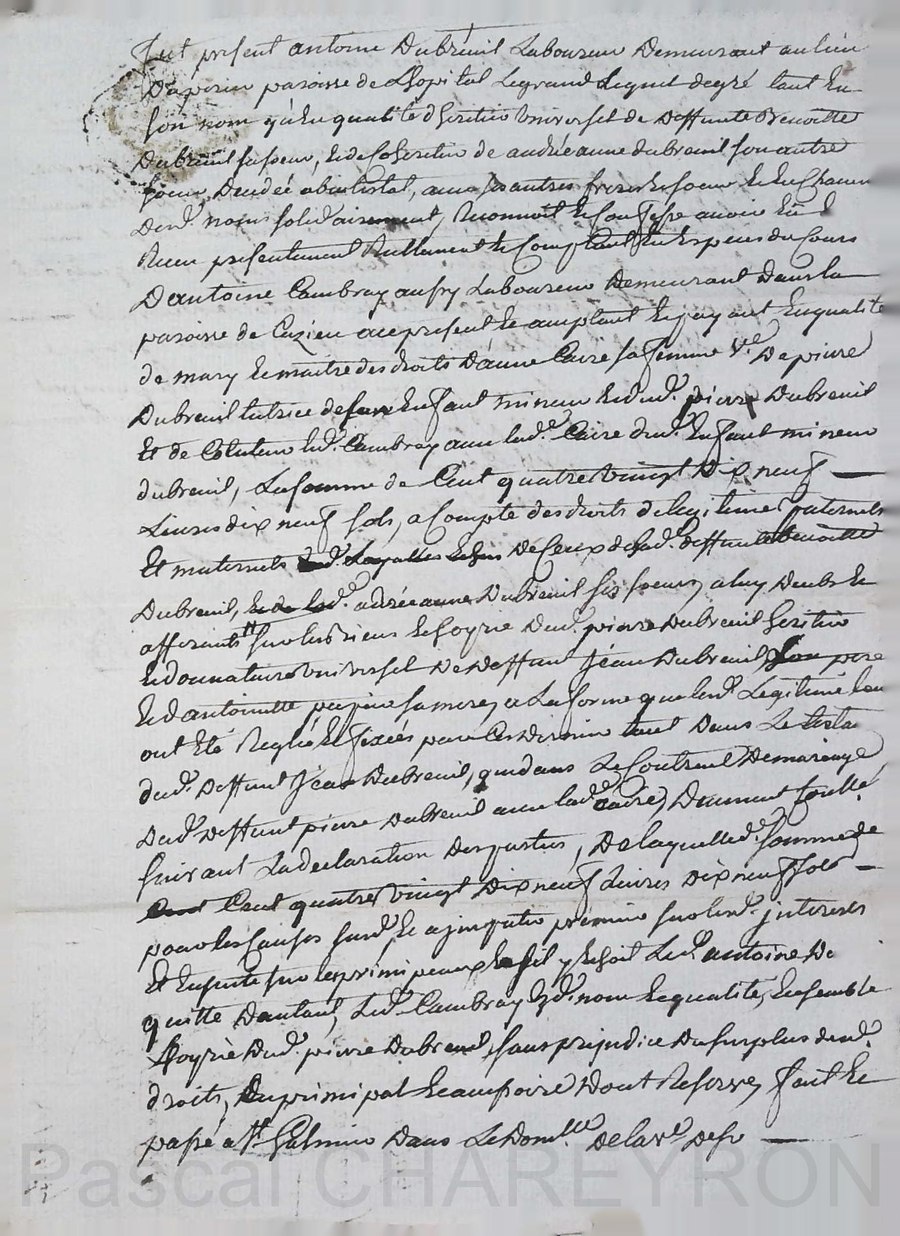 fut present antoine Dubreuil Laboureur Demeurant au lieu
paroisse de L'hopital Legrand Lequel degré tant En
son nom qu'En qualité d'heritier Universel de Deffunte Benoitte
Dubreuil sa soeur, Et de Coheritier de andrée anne dubreuil son autre
soeur Decedée abintestat, avec ses autres freres Et soeur Et En Chacun
Desd. noms solid'airement, Reconnoit Et Confesse avoir Eü Et
Receu presentement Reellement Et Comptant En Especes du Cours
D'antoine Cambray aussy Laboureur Demeurant Dans la
paroisse de Cuzieu ace present Et acceptant Et payant En qualité
de mary Et maitre des droits D'anne Caire sa femme Ve. De pierre
Dubreuil tutrice de son Enfant mineur Et dud. pierre Dubreuil
Et de Cotuteur Led. Cambray avec Lad.e Caire dud. Enfant mineur
dubreuil, La somme de Cent quatre Vingt Dix neuf —
Livres dix neuf sols, a Compte des droits de legitime paternels
Et maternels De Ceux de Lad. deffunte Benoitte
Dubreuil, Et de Lad. adrée anne Dubreuil ses soeurs, a luy Deubs Et
afferants sur les Biens Et hoyrie Dud. pierre Dubreuil heritier
Et donnataire Universel De Deffunt Jean Dubreuil, Son pere
Et d'antoinette sa mere, a La forme que lesd. Legitimes leur
ont Eté Reglées Et fixées par Ces Derniers tant Dans Le testa
dud. Deffunt Jean Dubreuil, que dans Le Contract De mariage
Dud. Deffunt pierre Dubreuil avec lad.e Caire, Dument Controllé
suivant La declaration Des parties, De laquelle d. somme de
Cent quatre Vingt Dix neuf Livres Dix neuf sols —
pour les Causes susd. Et a jmputer premier sur lesd. jnterets
Et Ensuite sur les principeaux Et sil y Echoit Led. antoine De
quitte D'autant, Led. Cambray Esd. noms Et qualité, Ensemble
Lhoyrie Dud. pierre Dubreuil, sans prejudice Du surplus desd.
droits, En principal Et accessoires Dont Reserve, fait Et
passé a St. Galmier Dans Le Domlle. De la Ve. Defo —
Pascal CHAREYRON